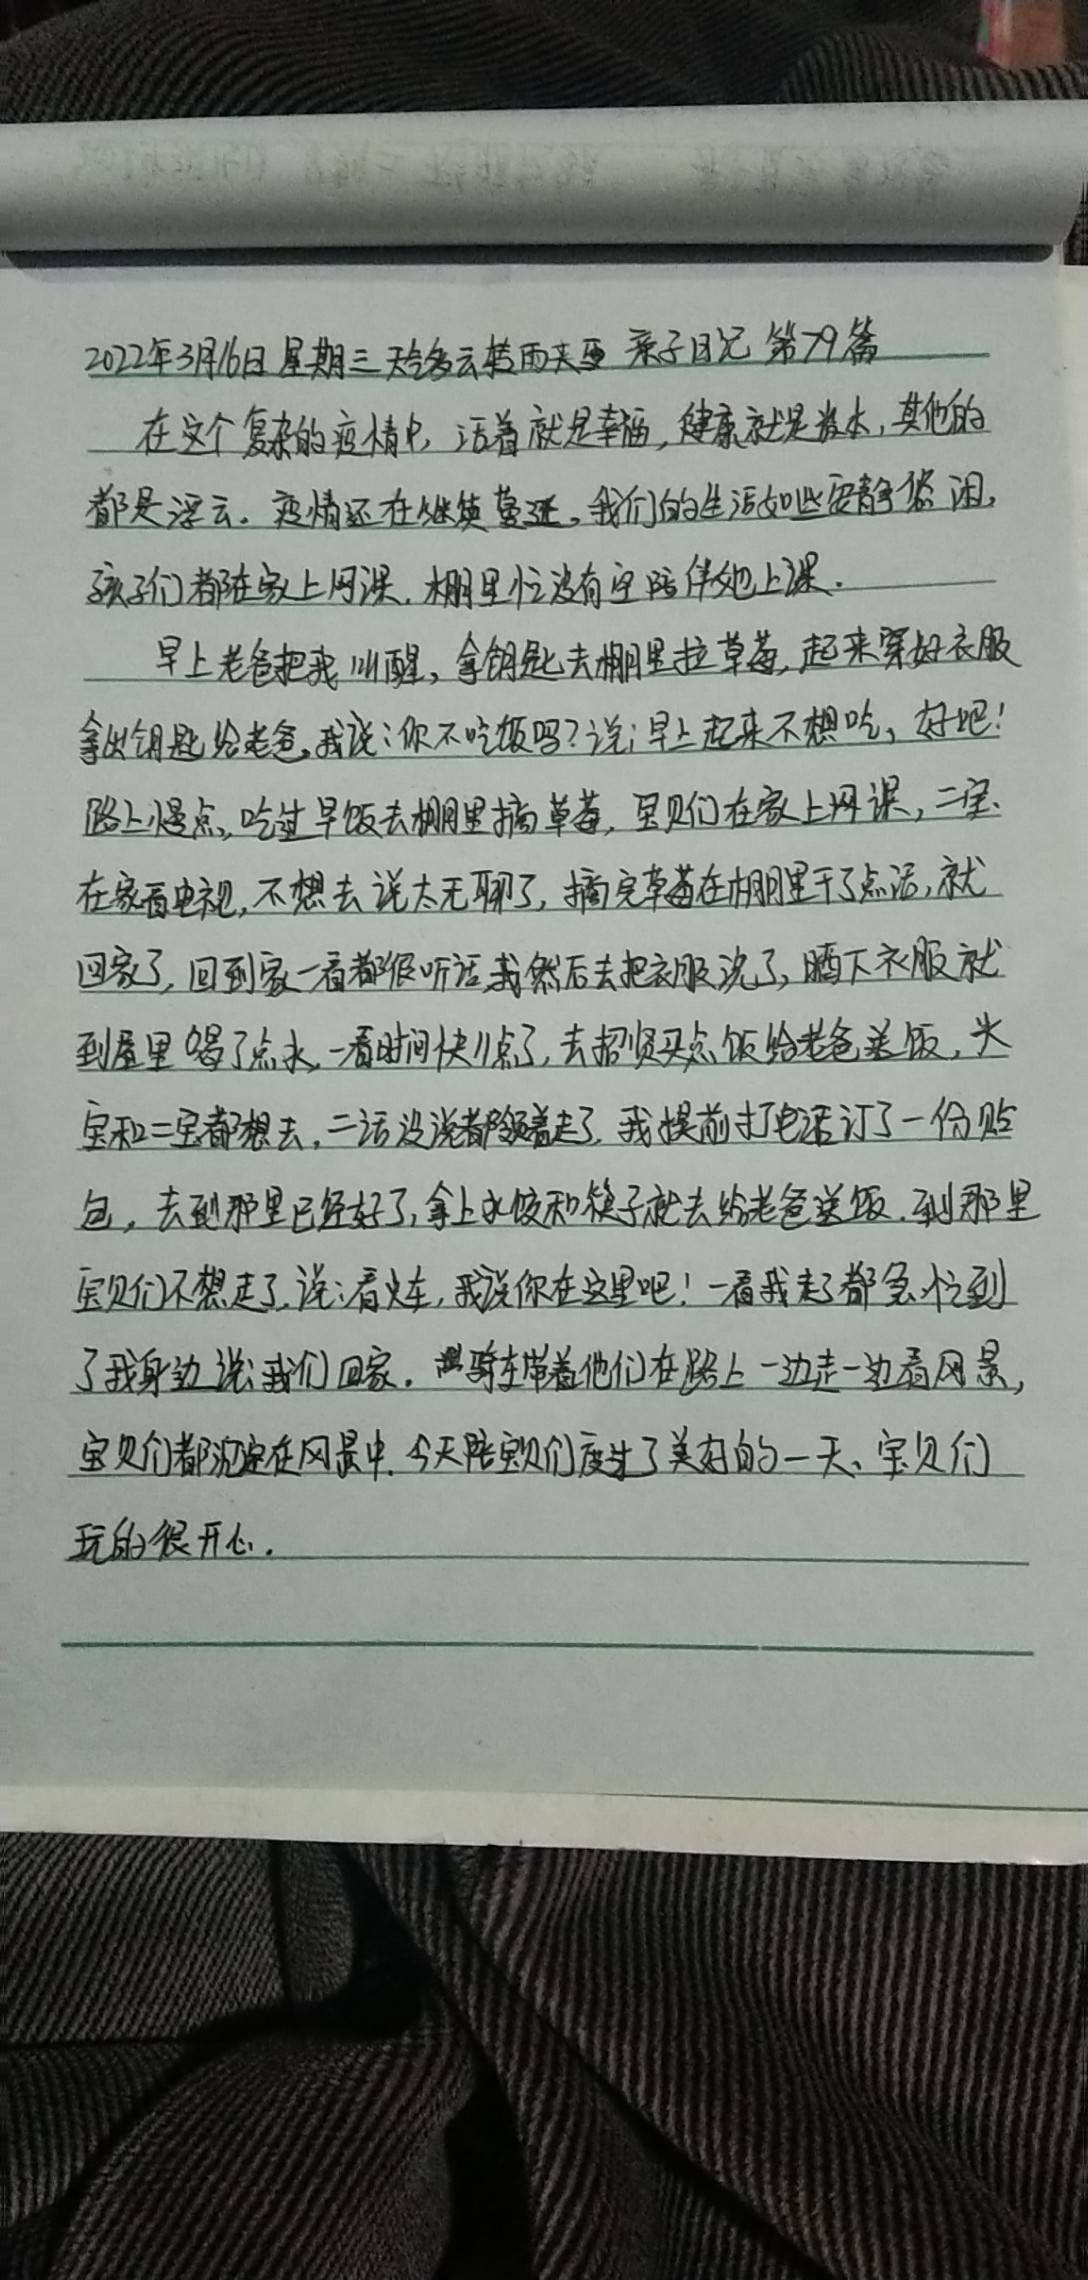 2022年3月16日 星期三 天气多云转雨夹雪 亲子日记 第79篇
在这个复杂的疫情中,活着就是幸福,健康就是资本,其他的
都是浮云。疫情还在继续蔓延。我们的生活如此安静悠闲,
孩子们都在家上网课,棚里忙没有空陪伴她上课.
早上老爸把我叫醒,拿钥匙去棚里拉草莓,起来穿好衣服
拿出钥匙给老爸,我说:你不吃饭吗?说:早上起来不想吃,好吧!
路上慢点,吃过早饭去棚里摘草莓,宝贝们在家上网课,二宝
在家看电视,不想去说太无聊了,摘完草莓在棚里干了点活,就
回家了,回到家一看都很听话,我然后去把衣服洗了,晒下衣服就
到屋里喝了点水,一看时间快11点了,去招贤买点饭给老爸送饭,大
宝和二宝都想去,二话没说都跟着走了,我提前打电话订了一份贴
包,去到那里已经好了,拿上水饺和筷子就去给老爸送饭.到那里
宝贝们不想走了,说:看火车,我说你在这里吧!一看我走了都急忙到
了我身边说:我们回家.骑车带着他们在路上一边走一边看风景,
宝贝们都沉迷在风景中.今天陪宝贝们度过了美好的一天、宝贝们
玩的很开心.